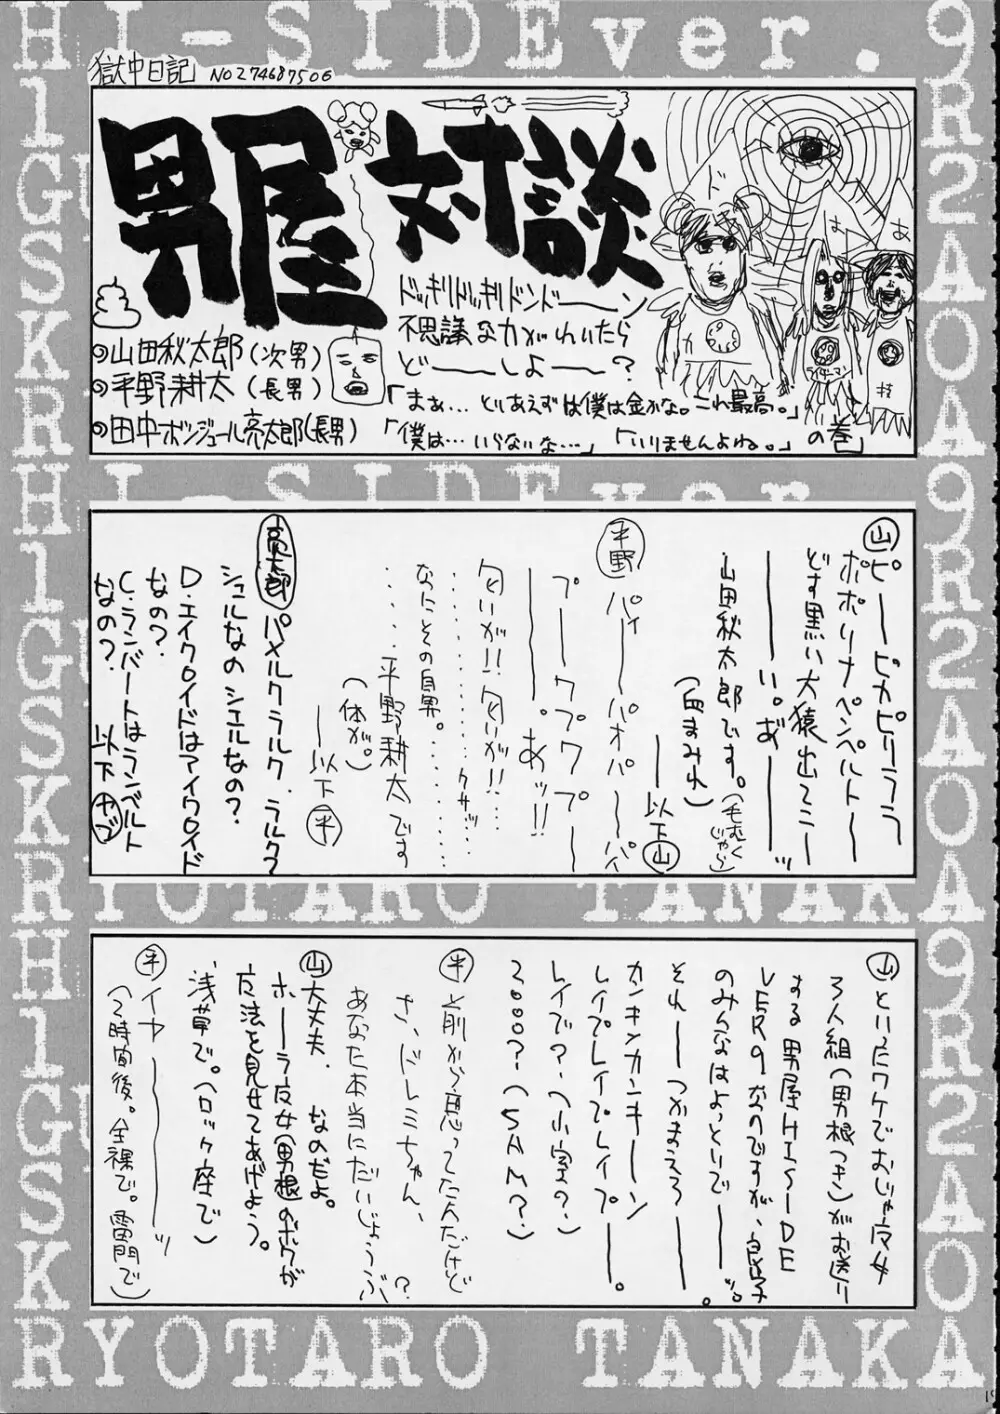 HI-SIDEver.9
獄中日記 NO274687506
男屋対談
ドッキリドッキリドンドーーン
不思議な力がわいたら
どーーしよーー?
◎山田秋太郎(次男)
◎平野耕太(長男)
◎田中ボンジュール亮太郎(長男)
「まあ…とりあえずは僕は金かな。これ最高。」
「僕は…いらないな…」「いりませんよね。」の巻
あ
は
山 ピーーピカピリララ
ポポリナペンペルトー
どす黒い大猿出てこー
ーーい。あ゛ーーッ
山田秋太郎です。(毛むくじゃら)
(血まみれ)
ーー以下山
平野 パイーーパオパーーパイ
プーープワプワプーー
ーー。あッ!!
匂いが!!匂いが!!…
………クサッ………
なにその自男。…………
……平野耕太です
(体が。)
ーー以下平
亮太郎 パメルクラルク、ラルク?
シュルなのシエルなの?
D・エイクロイドはアイクロイド
なの?
C・ランバートはランベルト
なの? 以下ヤで
山 というワケでおじゃ魔女
3人組(男根つき)がお送り
する男屋HI-SIDE
VER9なのですが、良い子
のみんなはよっといでーーッ。
それーーつかまえろーー。
カンキンカンキーーン
レイプレイプレイプーー。
レイプ?(小室?)
2000?(SAM?)
平 前から思ってたんだけど
さ、ドレミちゃん、
あなた本当にだいじょうぶ?
山 大丈夫、なのだよ。
ホーーラ魔女(男根)のボクが
魔法を見せてあげよう。
浅草で。(ロック座で)
平 イヤーーーーッ
(2時間後。全裸で。雷門で)
RYOTARO TANAKA